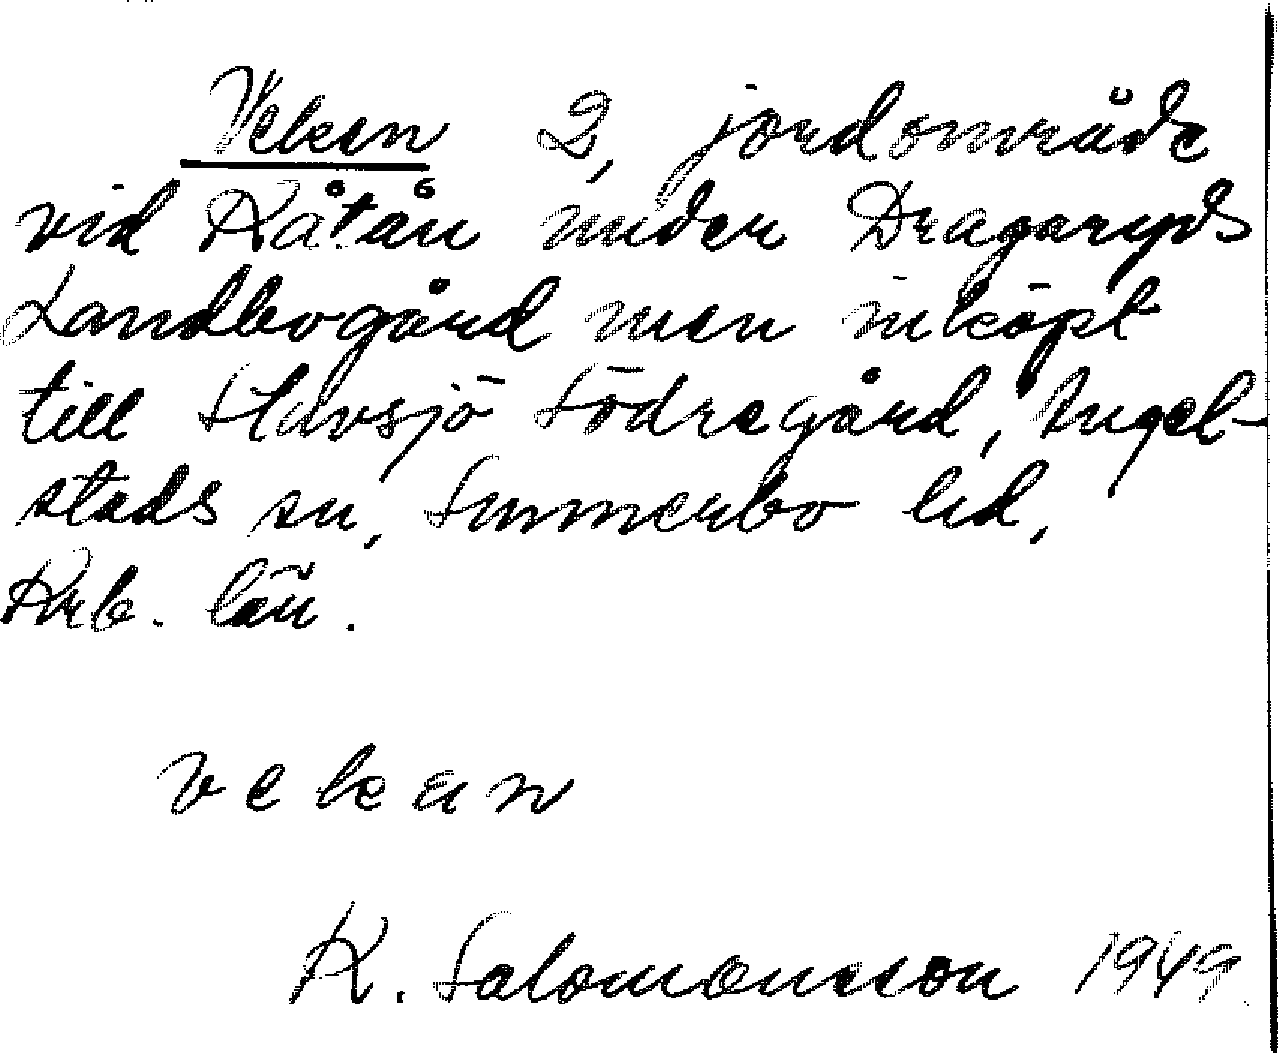 Veken 2, jordområde
vid Kåtån under Dragaryds
Landbogård men inköpt
till Stavsjö Södregård, Angel-
stads sn, Sunnerbo hd,
Krb. län.
vekan
K. Salomonsson 1949